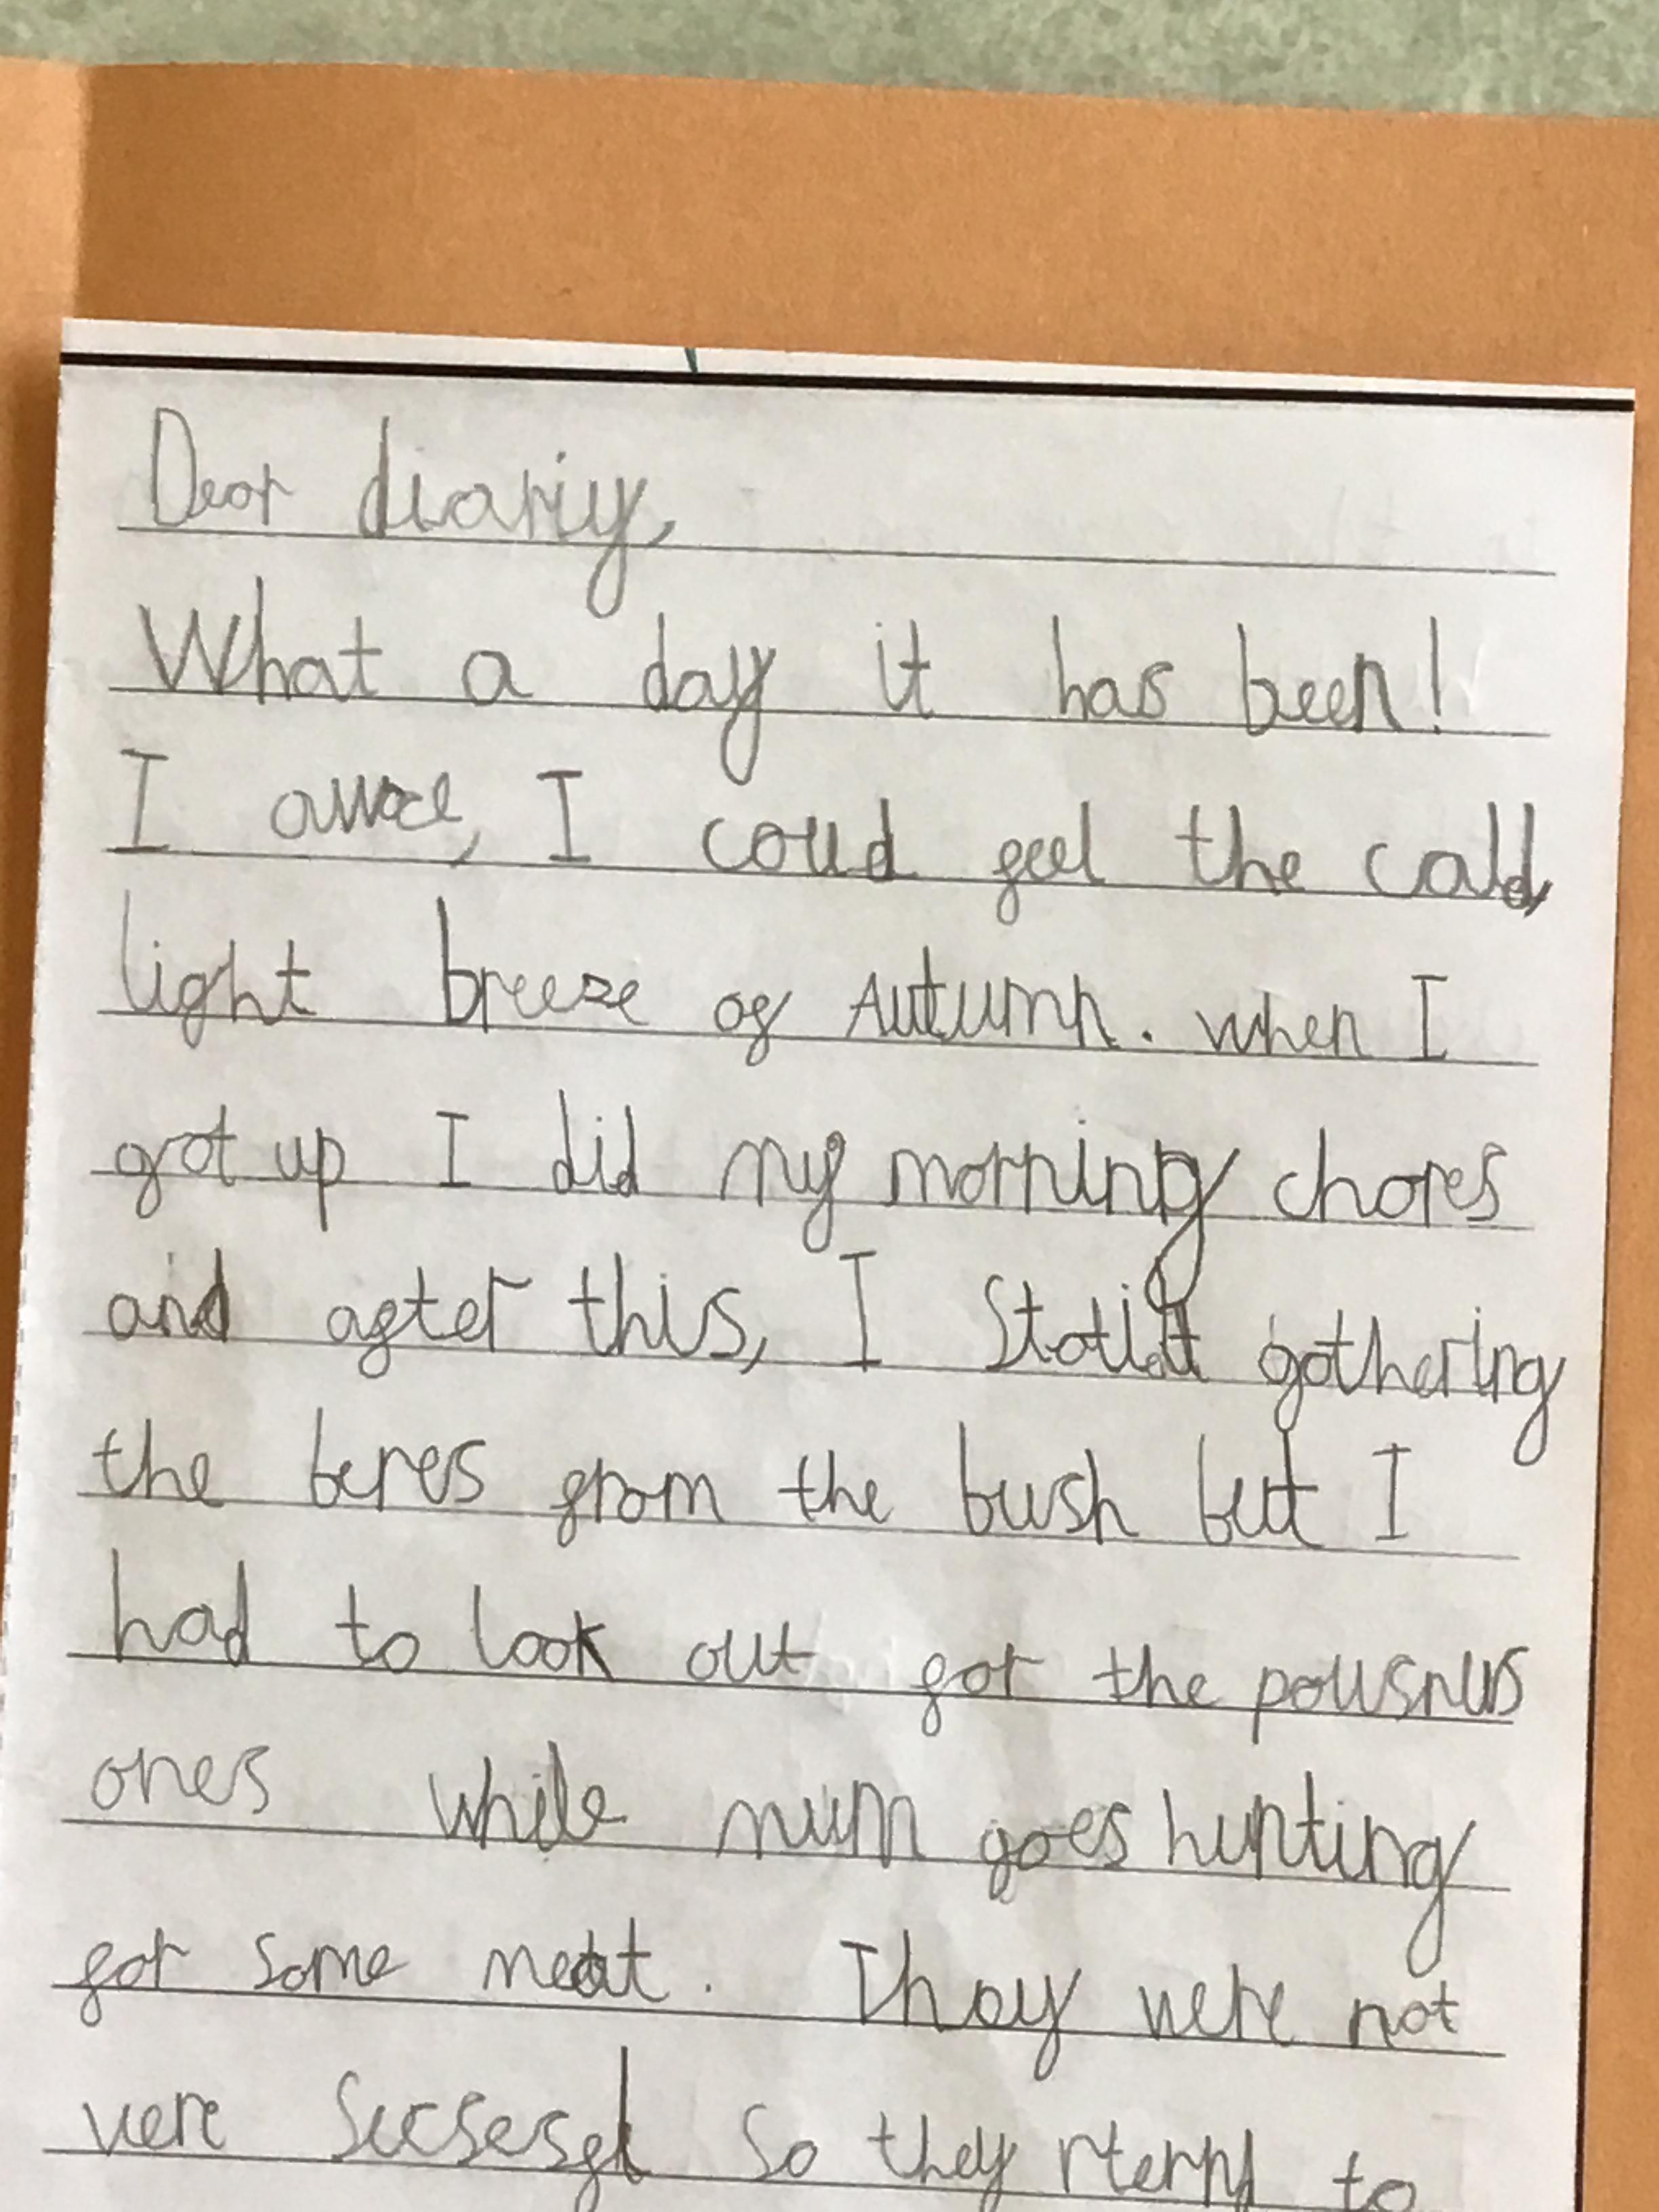 Dear diariy,
What a day it has been!
I awace, I coud feel the calld,
light breeze of Autumn. when I
got up I did my morning chores
and after this, I gathering
the beres from the bush but I
had to look out for the pousnus
ones while mum goes hunting
for some meat. Thay were not
vere Sucsesfl So they rternd to